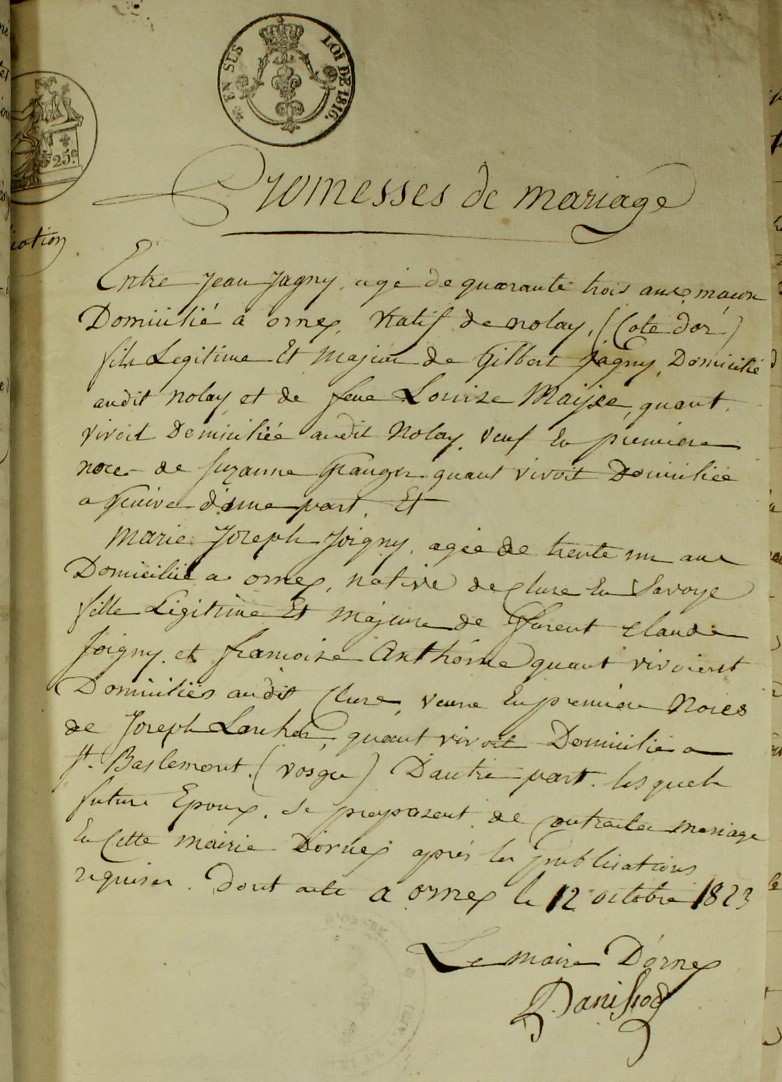 EN SUS LOI DE 1816.
25c
Promesses de mariage
Entre Jean Jagny, agé de quarante trois ans, macon
Domicilié a ornex, Natif de nolay, (Cote d'or)
fils Legitime Et Majeur de Gilbert Jagny, Domicilié
audit nolay et de feue Louise quant
vivoit Domiciliée audit Nolay, veuf En premiere
noce de Suzanne Grauger quant vivoit Domiciliée
a Genive d'une part, Et
Marie Joseph Joigny, agée de trente un ans
Domiciliée a ornex, native de Cluse En Savoye
fille Légitime Et majeure de furent Claude
Joigny, et francoise Anthoine quant vivoient
Domiciliés audit Cluse, veuve En premiere Noces
de Joseph quant vivoit Domicilié a
st. Baslemont, (vosge) D'autre part. lesquels
future Epoux, se proposent de contracter mariage
En Cette mairie D'ornex après les publications
requises. Dont acte a ornex le 12 octobre 1823
Le maire D'ornex
Danissod